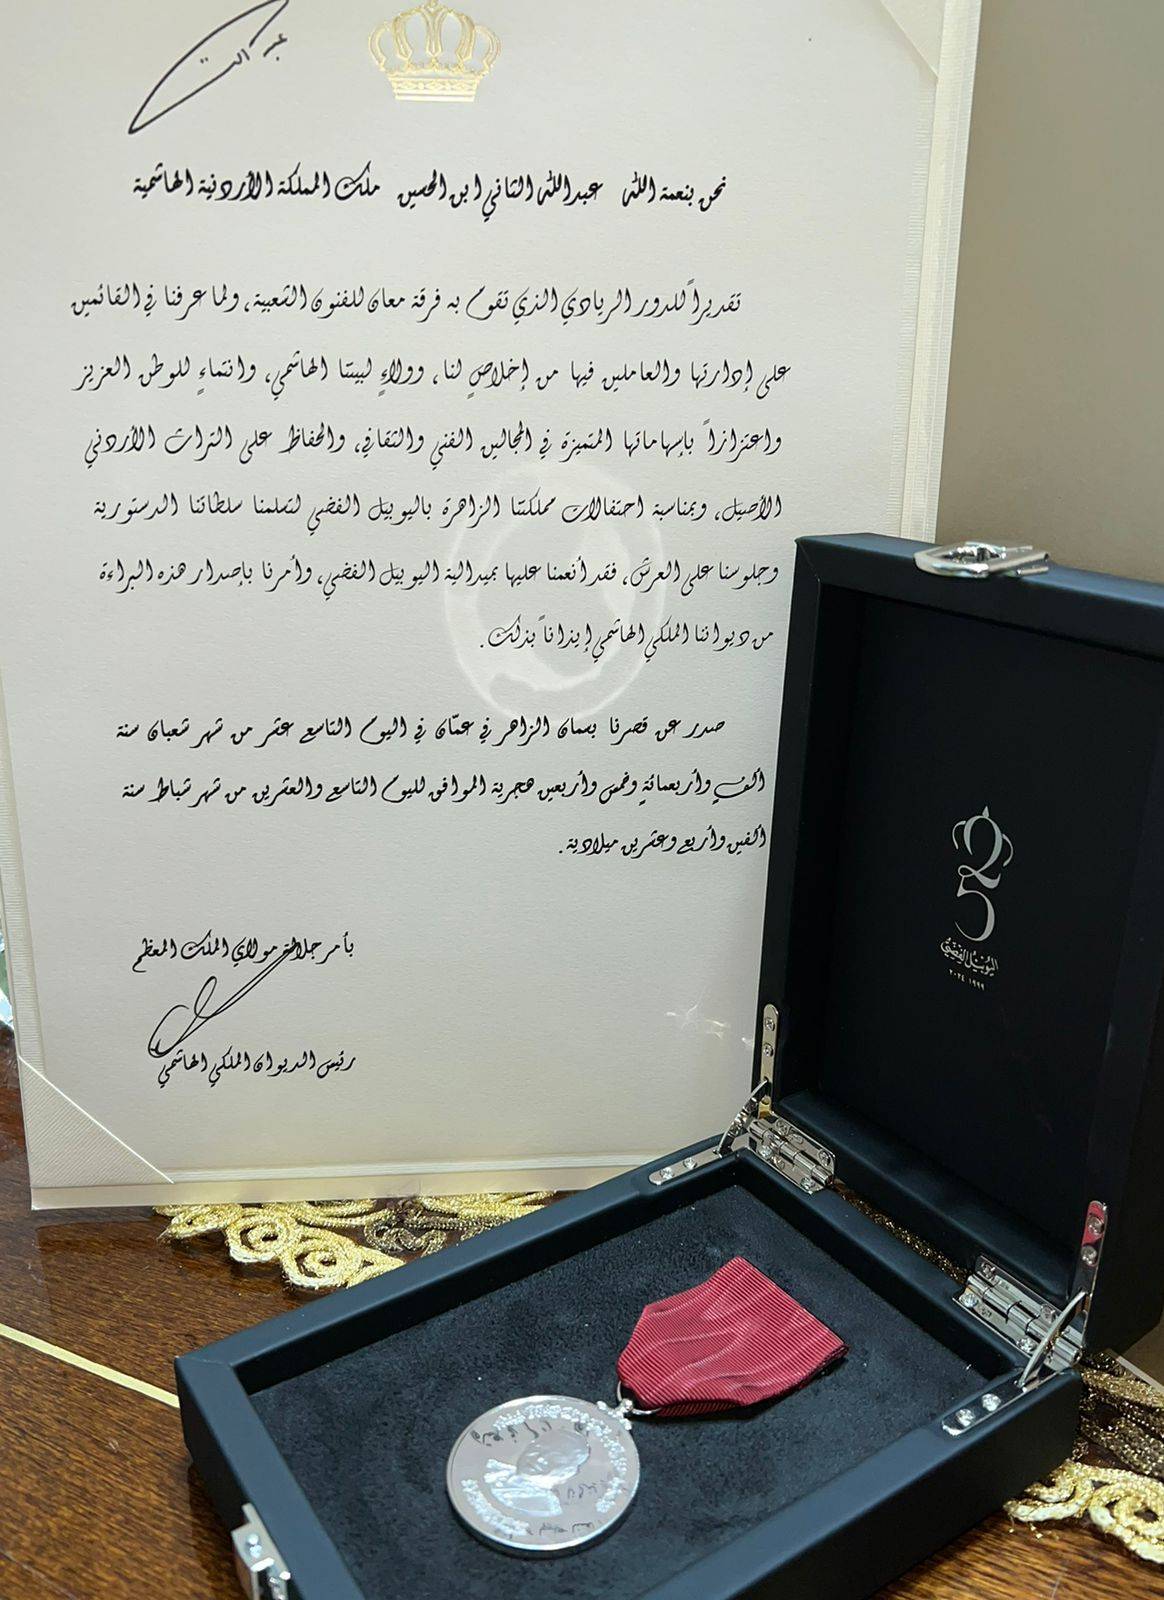 نحن بنعمة الله عبدالله الثاني ابن الحسين ملك المملكة الأردنية الهاشمية
تقديراً للدور الريادي الذي تقوم به فرقة معان للفنون الشعبية، ولما عرفنا في القائمين
على إدارتها والعاملين فيها من إخلاصٍ لنا، وولاءٍ لبيتنا الهاشمي، وانتماءٍ للوطن العزيز
واعتزازاً بإسهاماتها المتميزة في المجالين الفني والثقافي، والحفاظ على التراث الأردني
الأصيل، وبمناسبة احتفالات مملكتنا الزاهرة باليوبيل الفضي لتسلمنا سلطاتنا الدستورية
وجلوسنا على العرش، فقد أنعمنا عليها بميدالية اليوبيل الفضي، وأمرنا بإصدار هذه البراءة
من ديواننا الملكي الهاشمي إيذاناً بذلك.
صدر عن قصرنا بسمان الزاهر في عمّان في اليوم التاسع عشر من شهر شعبان سنة
ألف وأربعمائةٍ وخمس وأربعين هجرية الموافق لليوم التاسع والعشرين من شهر شباط سنة
ألفين وأربع وعشرين ميلادية.
بأمر جلالة مولاي الملك المعظم
رئيس الديوان الملكي الهاشمي
25
اليوبيل الفضي
١٩٩٩ ٢٠٢٤